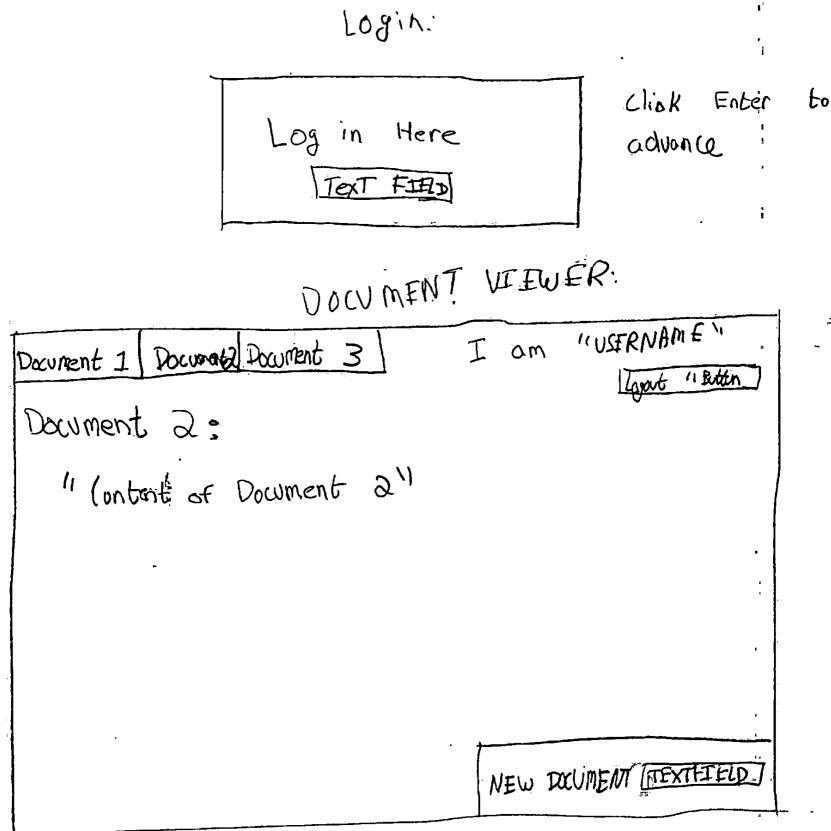 Login:
Log in Here
TEXT FIELD
Click Enter to
advance
DOCUMENT VIEWER:
Document 1 Document2 Document 3
I am "USERNAME"
Logout "Button
Document 2:
"Content of Document 2"
NEW DOCUMENT TEXTFIELD